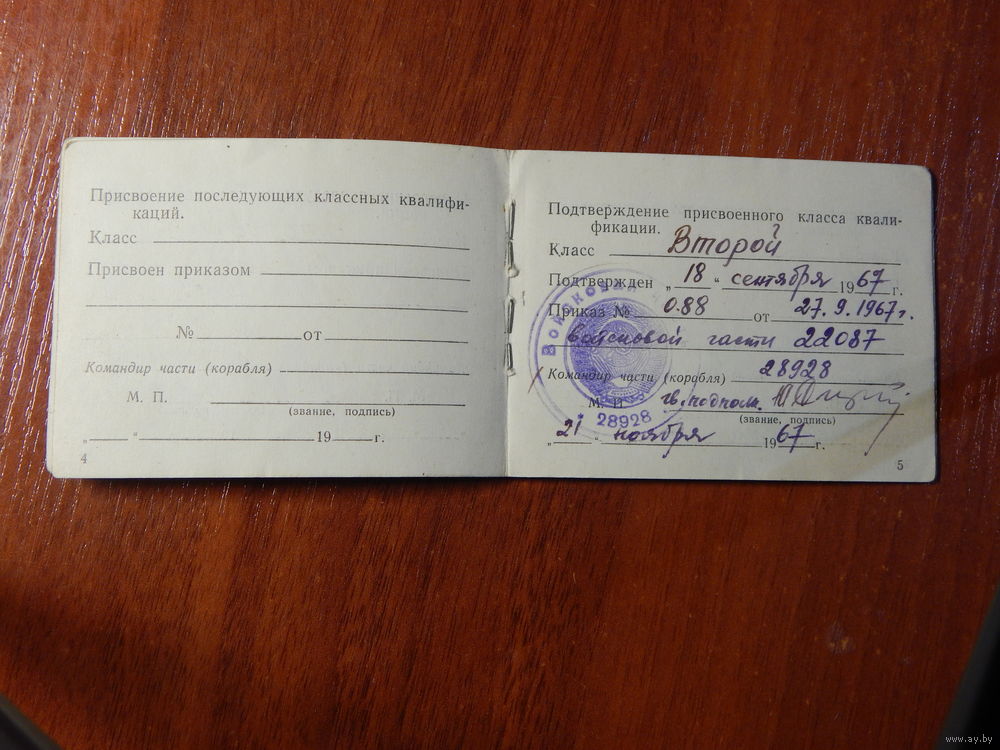 Присвоение последующих классных квалифи-
каций.
Класс
Присвоен приказом
№ от
Командир части (корабля)
М. П.
(звание, подпись)
„ “ 19 г.
4
Подтверждение присвоенного класса квали-
фикации.
Класс Второй
Подтвержден „ 18 “ сентября 1967 г.
Приказ № 088 от 27.9.1967 г.
войсковой части 22087
Командир части (корабля) 28928
М. П гв. подполк.
(звание, подпись)
„ 21 “ ноября 1967 г.
5
Войсковая
* 28928
www.ay.by